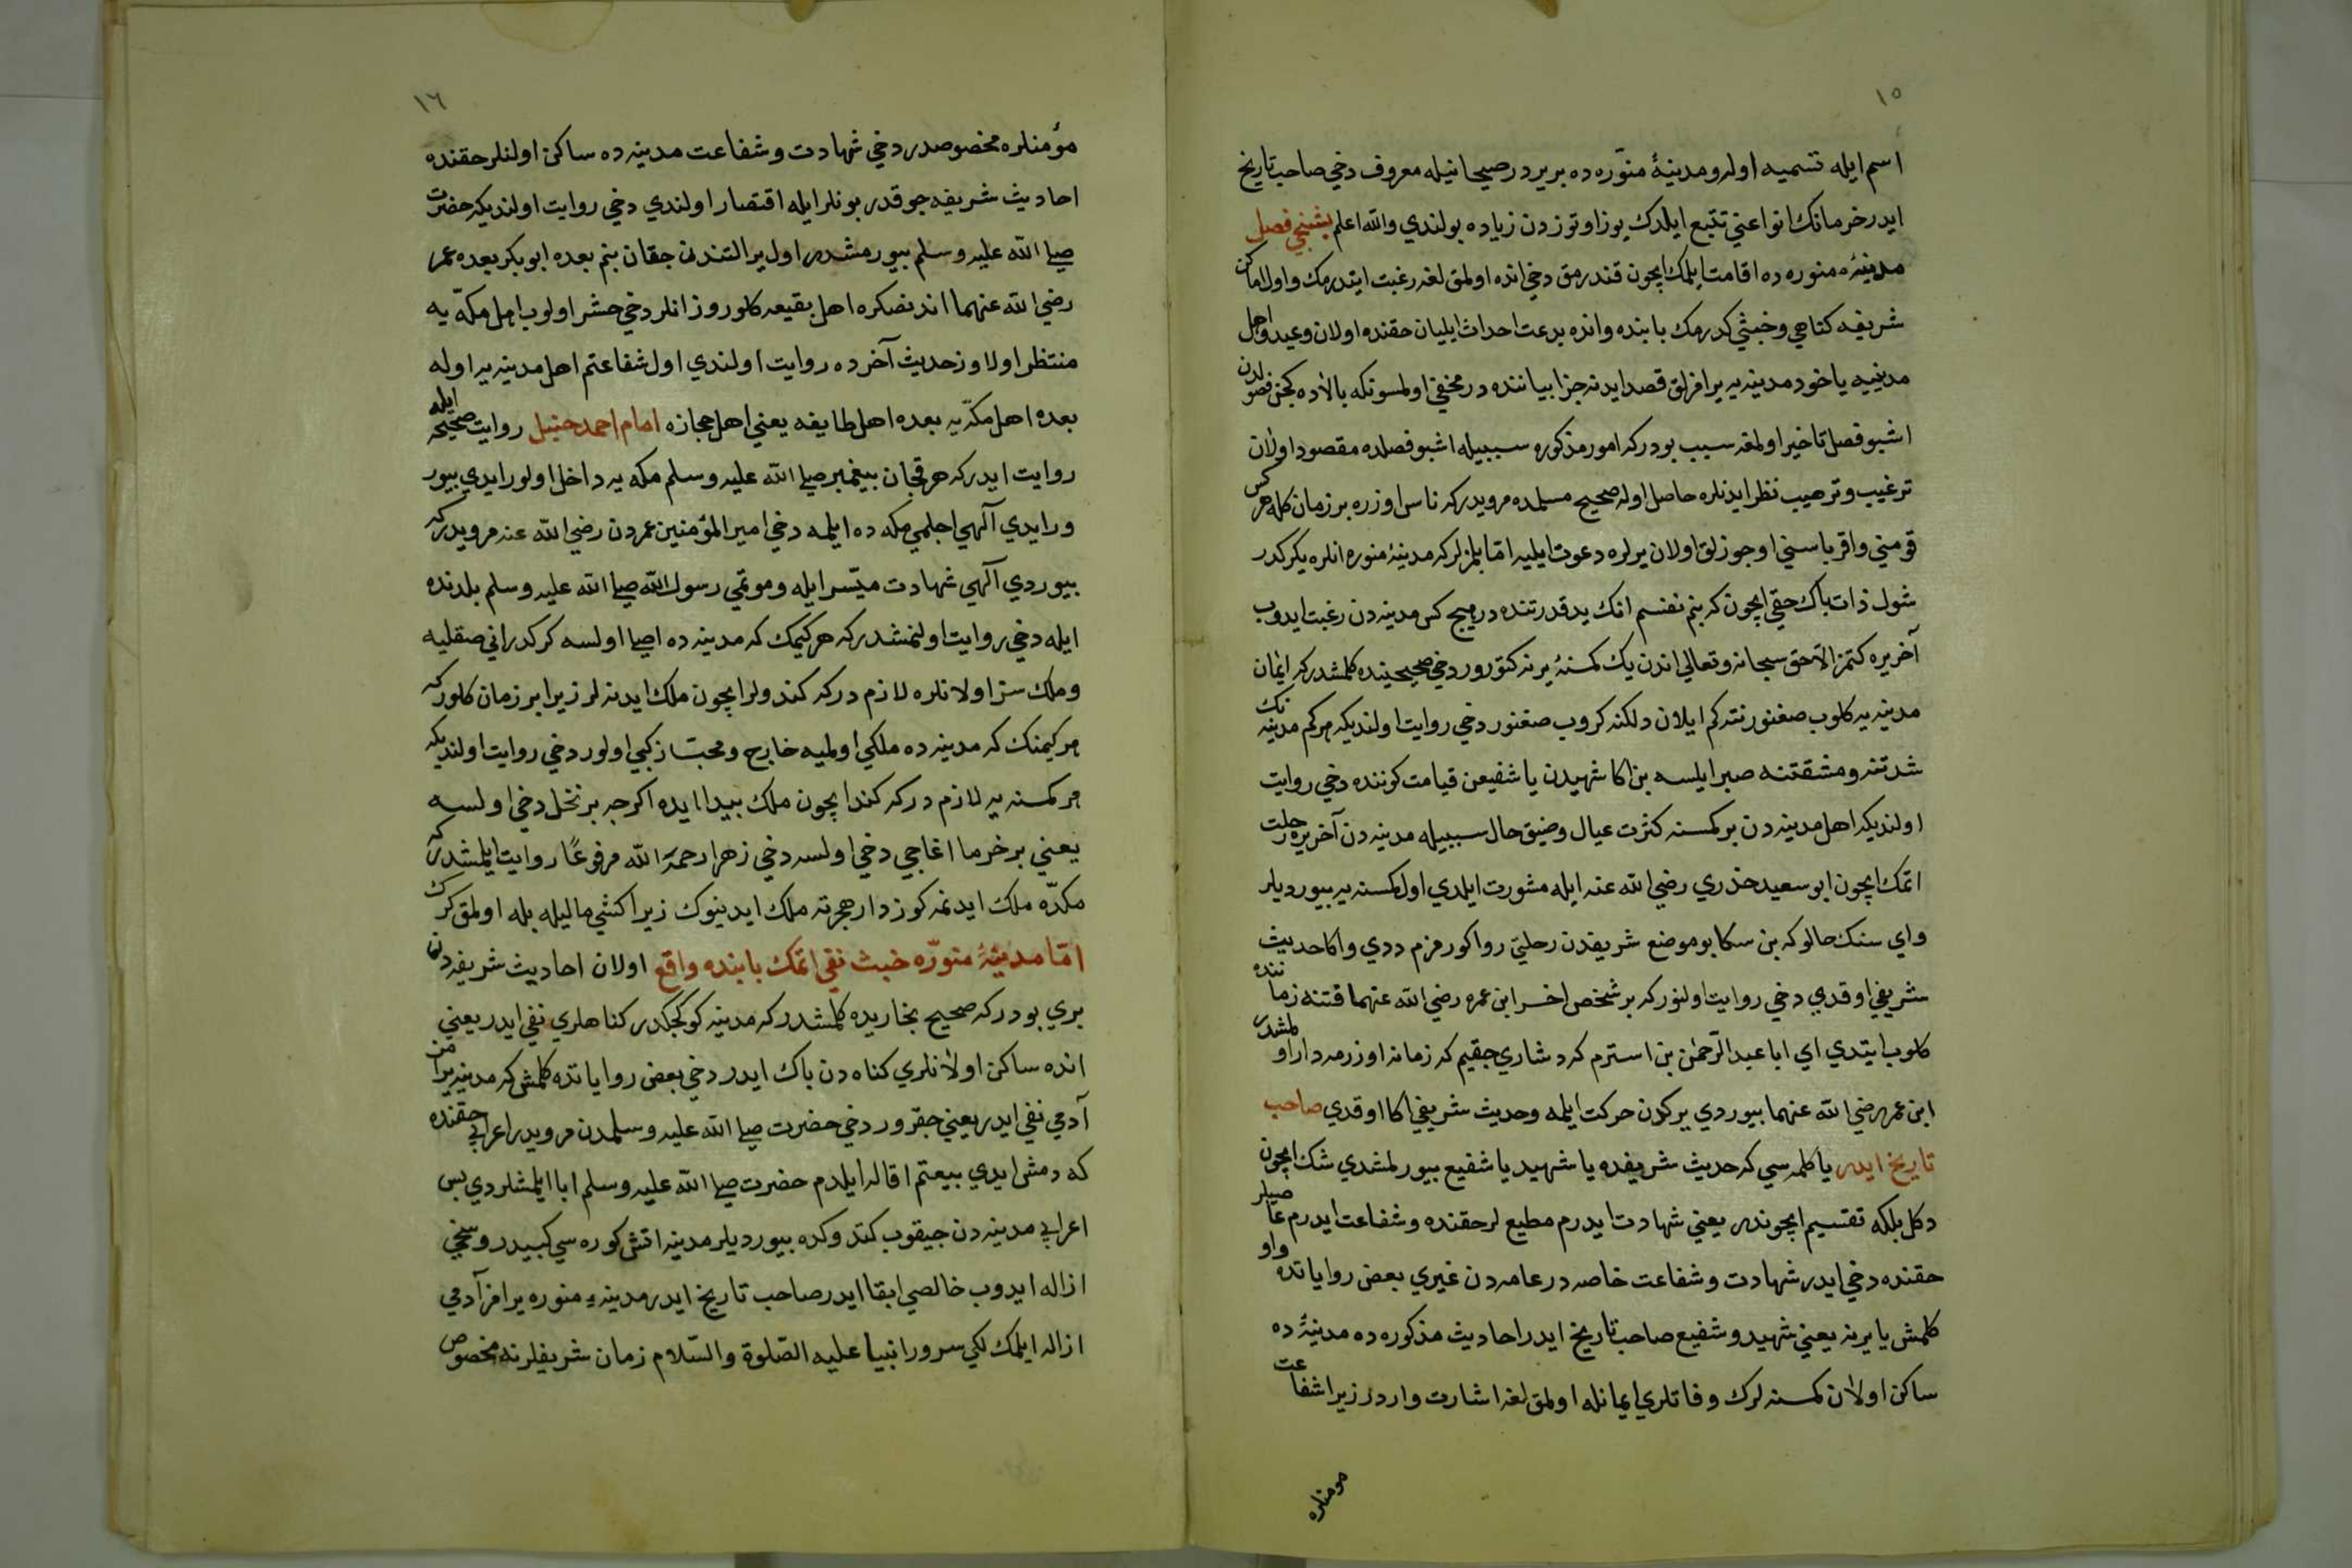 ١٥
اسم ايله تسميه اولر ومدينۀ منوّره ده بريرد رصيحانيله معروف دخي صاحب تاريخ
ايدر خرمانك انواعني تتبع ايلدك يوز اوتوزدن زياده بولندي والله اعلم بشنجي فصل
مدينۀ منوره ده اقامت ايلمك ايچون قندرمق دخي انده اولمق لغه رغبت ايتدرمك واول اماكن
شريفه كناهي وخبثي كدرمك بابنده وانده بدعت احداث ايليان حقنده اولان وعيد واهل
مدينيه ياخود مدينه يه يرافزلق قصد ايدنه جزا بياننده در مخفي اولمسونكه بالاده كچن فصولدن
اشبو فصل تاخير اولمغه سبب بودركه امور مذكوره سببيله اشبو فصلده مقصود اولان
ترغيب وترهيب نظر ايدنلره حاصل اوله صحيح مسلمده مرويدركه ناس اوزره بر زمان كله هر كس
قومني واقرباسني اوجوزلق اولان يرلره دعوت ايليه امّا بلمزلركه مدينۀ منوره انلره يكركدر
شول ذات پاك حقيچون كه بنم نفسم انك يد قدرتنده در هيچ كس مدينه دن رغبت ايدوب
آخر يره كتمز الاّ حق سبحانه وتعالي اندن يك كمسنۀ يرنه كتورور دخي صحيحينده كلمشدركه ايمان
مدينه يه كلوب صغنور نته كم ايلان دلكنه كروب صغنور دخي روايت اولنديكه هركم مدينه نك
شدتنه ومشقتنه صبر ايلسه بن اكا شهيدن يا شفيعن قيامت كوننده دخي روايت
اولنديكه اهل مدينه دن بر كمسنه كثرت عيال وضيق حال سببيله مدينه دن آخر يره رحلت
اتمك ايچون ابو سعيد خدري رضي الله عنه ايله مشورت ايلدي اول كمسنه يه بيورديلر
واي سنك حالوكه بن سكا بو موضع شريفدن رحلتي روا كورمزم ددي واكا حديث
شريفي اوقدي دخي روايت اولنوركه بر شخص اخر ابن عمر رضي الله عنهما فتنه زماننده
كلوب ايتدي اي ابا عبد الرّحمن بن استرم كه دشاري چقيم كه زمانه اوزرمه دار اولمشدر
ابن عمر رضي الله عنهما بيوردي يركدن حركت ايلمه وحديث شريفي اكا اوقدي صاحب
تاريخ ايدر يا كلمه سي كه حديث شريفده يا شهيد يا شفيع بيورلمشدي شك ايچون
دكل بلكه تقسيم ايچوندر يعني شهادت ايدرم مطيع لر حقنده وشفاعت ايدرم عاصيلر
حقنده دخي ايدر شهادت وشفاعت خاصه در عامه دن غيري بعض رواياتده واو
كلمش يا يرنه يعني شهيد وشفيع صاحب تاريخ ايدر احاديث مذكوره ده مدينۀ ده
ساكن اولان كمسنه لرك وفاتلري ايمانله اولمق لغه اشارت واردر زيرا شفاعت
مومنلره
١٦
مؤمنلره مخصوصدر دخي شهادت وشفاعت مدينه ده ساكن اولنلر حقنده
احاديث شريفه چوقدر بونلر ايله اقتصار اولندي دخي روايت اولنديكه حضرت
صلي الله عليه وسلم بيورمشدر اول ير التندن چقان بنم بعده ابو بكر بعده عمر
رضي الله عنهما اندنصكره اهل بقيعه كلوروز انلر دخي حشر اولوب اهل مكّه يه
منتظر اولاوز حديث آخرده روايت اولندي اول شفاعتم اهل مدينه يه اوله
بعده اهل مكّه يه بعده اهل طايفه يعني اهل حجازه امام احمد حنبل روايت صحيحه ايله
روايت ايدركه هر قچان پيغمبر صلي الله عليه وسلم مكه يه داخل اولورايدي بيور
ورايدي آلهي اجلمي مكه ده ايلمه دخي امير المؤمنين عمردن رضي الله عنه مرويدركه
بيوردي آلهي شهادت ميّسر ايله وموتمي رسول الله صلي الله عليه وسلم بلدنده
ايله دخي روايت اولنمشدركه هر كيمك كه مدينه ده اصلي اولسه كركدر اني صقليه
وملك سز اولانلره لازم دركه كندولر ايچون ملك ايدنه لر زيرا بر زمان كلوركه
هر كيمنك كه مدينه ده ملكي اولميه خارج ومجتاز كبي اولور دخي روايت اولنديكه
هر كمسنه يه لازم دركه كندا يچون ملك پيدا ايده اكرچه بر نخل دخي اولسه
يعني بر خرما اغاجي دخي اولسه دخي زهرا رحمة الله مرفوعًا روايت ايلمشدركه
مكّده ملك ايدنمه كوز دار هجرته ملك ايدينوك زيرا كشي ماليله بله اولمق كرك
امّا مدينۀ منوّره خبث نفي اتمك بابنده واقع اولان احاديث شريفه دن
بري بودركه صحيح بخاريده كلمشدركه مدينه كوكجكدر كناهلري نفي ايدر يعني
انده ساكن اولانلري كناه دن پاك ايدر دخي بعض رواياتده كلمش كه مدينه يرامز
آدمي نفي ايدر يعني چقرور دخي حضرت صلي الله عليه وسلمدن مرويدر اعرابي حقنده
كه دمش ايدي بيعتم اقاله ايلدم حضرت صلي الله عليه وسلم ابا ايلمشلردي پس
اعرابي مدينه دن چيقوب كتدوكده بيورديلر مدينه اتش كوره سي كبيدر وسخي
ازاله ايدوب خالصي ابقا ايدر صاحب تاريخ ايدر مدينۀ منوره يرامز آدمي
ازاله ايلمك لكي سرور انبيا عليه الصّلوة والسّلام زمان شريفلرنه مخصوص